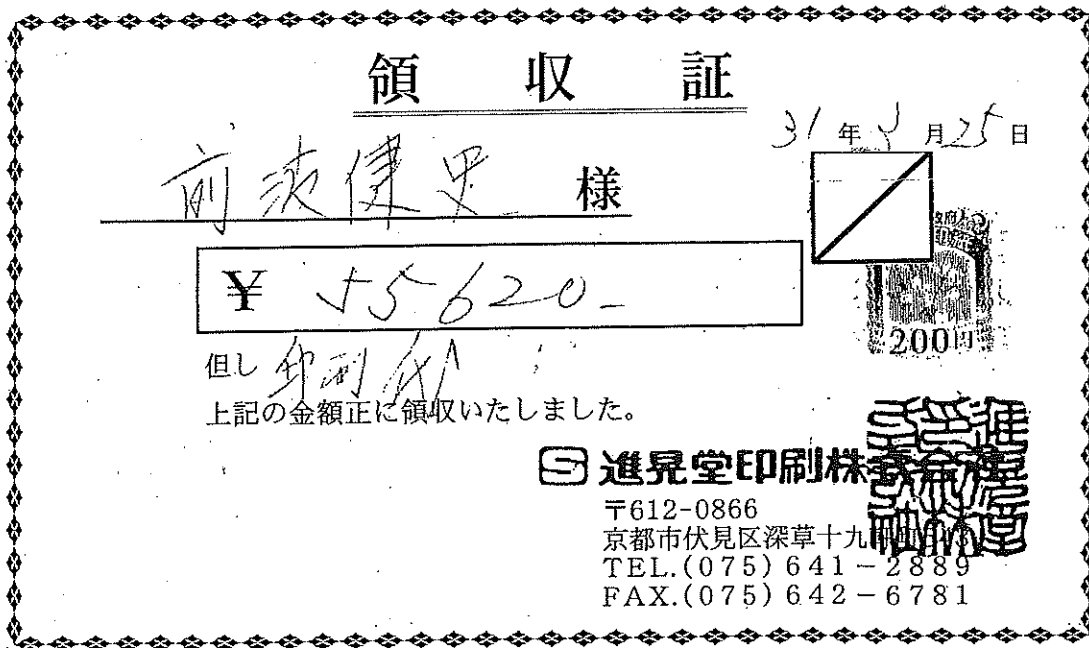 領収証
31年3月25日
前波健史 様
¥ 55620-
200円
但し 印刷代
上記の金額正に領収いたしました。
進晃堂印刷株式会社
〒612-0866
京都市伏見区深草十九
TEL.(075)641-2889
FAX.(075)642-6781